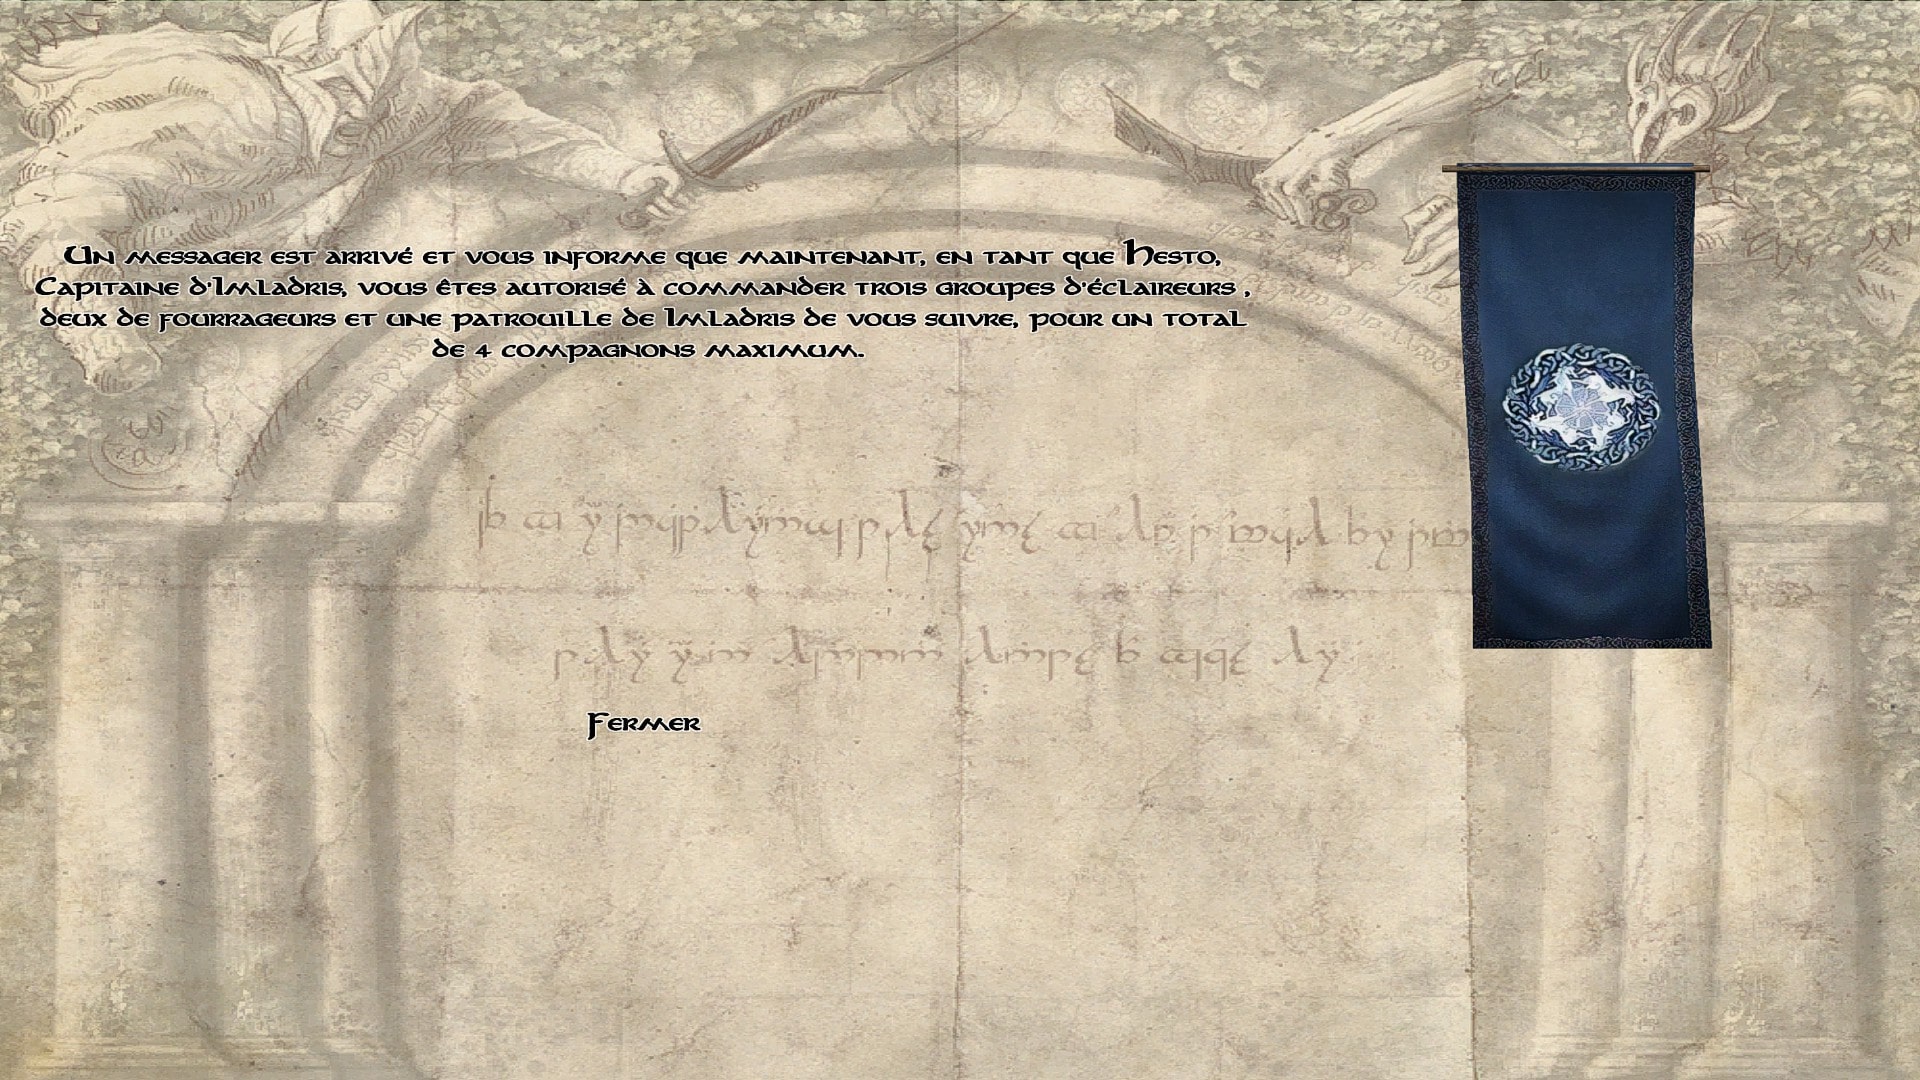 Un messager est arrivé et vous informe que maintenant, en tant que Hesto,
Capitaine d'Imladris, vous êtes autorisé à commander trois groupes d'éclaireurs ,
deux de fourrageurs et une patrouille de Imladris de vous suivre, pour un total
de 4 compagnons maximum.
Fermer